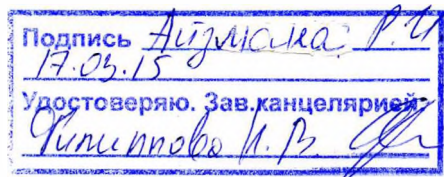 Подпись Айзмана Р.И
17.03.15
Удостоверяю. Зав.канцелярией:
Филиппова И.В.